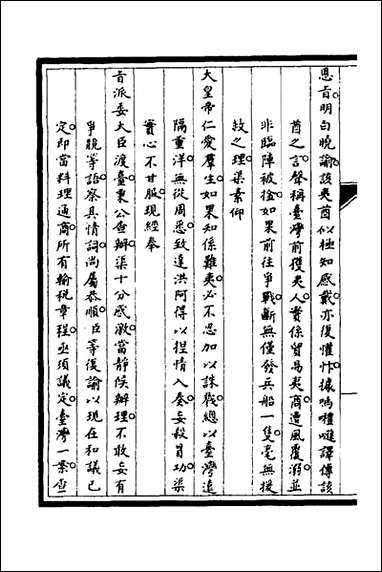 恩旨明白曉諭該夷酋似極知感戴亦復懼忭據嗎禮嗹譯傳該
酋之言聲稱臺灣前獲夷人實係貿易夷商遭風覆溺並
非臨陣被擒如果前往爭戰斷無僅發兵船一隻毫無援
救之理渠素仰
大皇帝仁愛羣生如果知係難夷必不忍加以誅戮總以臺灣遠
隔重洋無從周悉致達洪阿得以捏情入奏妄殺冒功渠
實心不甘服現經奉
旨派委大臣渡臺秉公查辦渠十分感激當靜候辦理不敢妄有
爭競等語察其情詞尚屬恭順臣等復諭以現在和議已
定即當料理通商所有輸稅章程亟須議定臺灣一案查